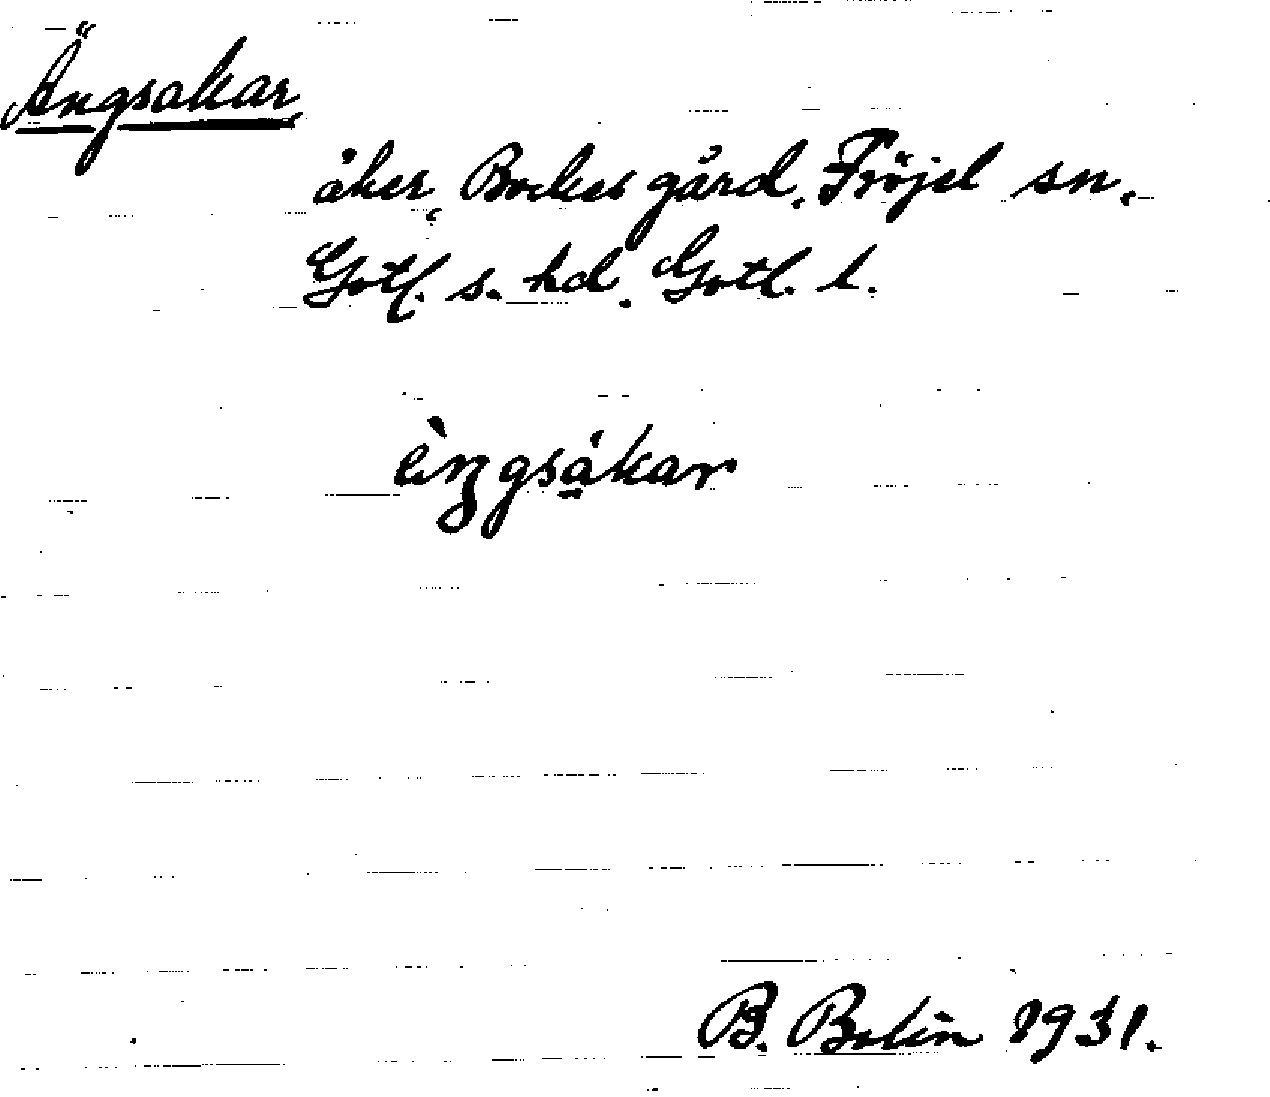 Ängsakar
åker, Bockes gård, Fröjel sn.
Gotl. s. hd. Gotl. l.
èŋgsa̱kar
B. Bolin 1931.